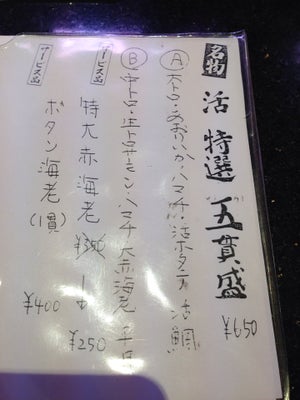 名物 活 特選 五貫盛 ¥650
Ⓐ 大トロ・あおいか・ハマチ・活ホタテ・活鯛
Ⓑ 中トロ・生トロサーモン・ハマチ・大赤海老
サービス品 特大赤海老 ¥250
サービス品 ボタン海老(1貫) ¥400